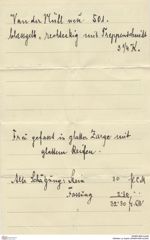 Van der Nüll neu 501.
blassgelb, rechteckig mit Treppenschnitt
3 1/4 K.
Frei gefasst in glatter Zarge mit
glattem Reifen.
Alte Schätzung: Stein 30
Fassung 2.50
32.50